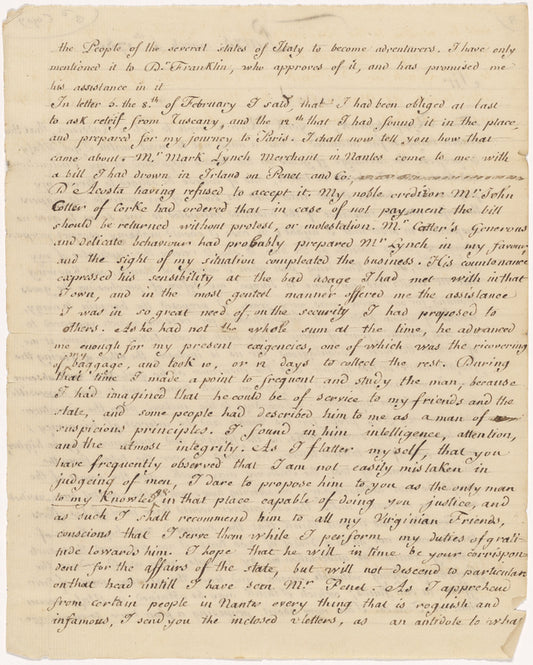 the People of the several states of Italy to become adventurers. I have only
mentioned it to Dr. Franklin, who approves of it, and has promised me
his assistance in it
In letter 6. the 8.th of February I said, that I had been obliged at last
to ask releif from Tuscany, and the 12.th that I had found it in the place,
and prepared for my journey to Paris. I shall now tell you how that
came about. Mr. Mark Lynch Merchant in Nantes come to me with
a bill I had drown in Irland on Penet and Co;
D'Acosta having refused to accept it. My noble creditor Mr. John
Cotter of Corke had ordered that in case of not payment the bill
should be returned without protest, or molestation. Mr. Cotter's Generous
and delicate behaviour had probably prepared Mr. Lynch in my favour,
and the sight of my situation compleated the business. His countenance
expressed his sensibility at the bad usage I had met with in that
Town, and in the most genteel manner offered me the assistance
I was in so great need of, on the security I had proposed to
others. As he had not the whole sum at the time, he advanced
me enough for my present exigencies, one of which was the ricovering
of my baggage, and took 10, or 12 days to collect the rest. During
that time I made a point to frequent and study the man, because
I had imagined that he could be of service to my friends and the
state, and some people had described him to me as a man of
suspicious principles. I found in him intelligence, attention,
and the utmost integrity. As I flatter myself, that you
have frequently observed that I am not easily mistaken in
judgeing of men, I dare to propose him to you as the only man
to my Knowledge in that place capable of doing you justice, and
as such I shall recommend him to all my Virginian Friends,
conscious that I serve them while I perform my duties of grati-
tude towards him. I hope that he will in time be your corrispon-
dent for the affairs of the state, but will not descend to particulars
on that head untill I have seen Mr. Penet. As I apprehend
from certain people in Nantes every thing that is roguish and
infamous, I send you the inclosed letters, as an antidote to what